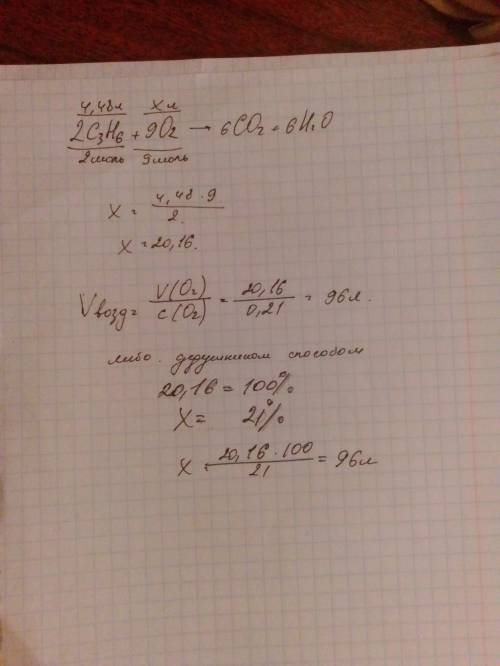 4,48л хл
2C₃H₆ + 9O₂ → 6CO₂ + 6H₂O
2моль 9моль
X = 4,48 · 9 / 2
X = 20,16.
Vвозд = V(O₂) / C(O₂) = 20,16 / 0,21 = 96л.
либо способом
20,16 = 100%
X = 21%
X = 20,16 · 100 / 21 = 96л